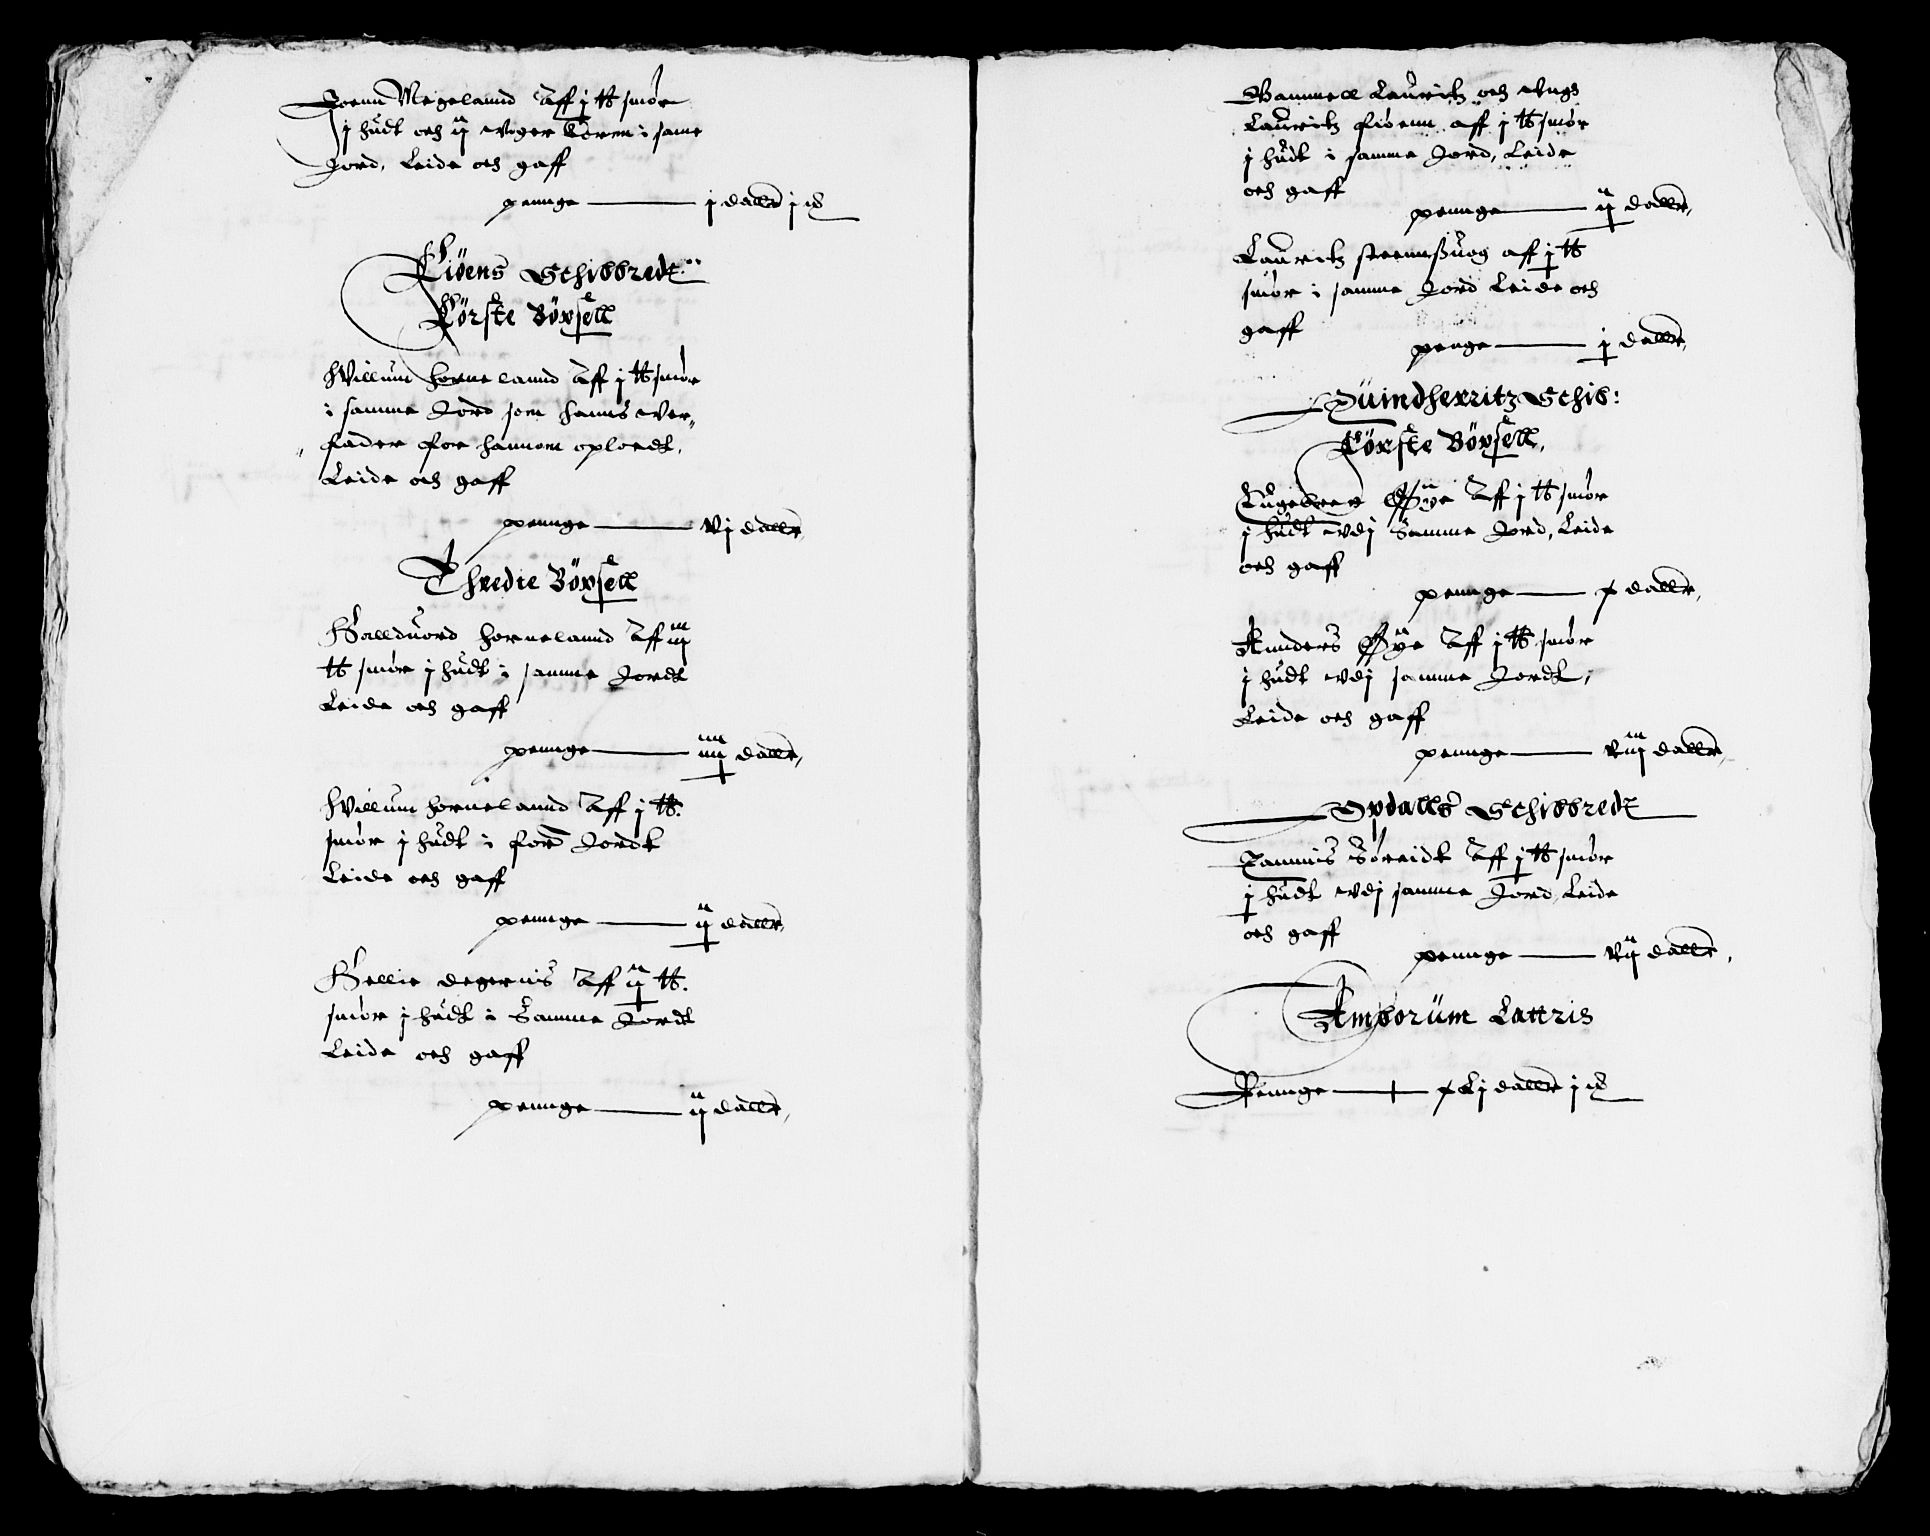 Joenn Megelannd Aff j tt smør
j hudt och ij woger Korn i same
Jord, Leide och gaff
pennge —— j daller j
Liöens Schibbredt
Förste Börsell
Willum hornelannd Aff j tt smør
i samme Jord som hanns Wer„
„ fader for hannom oploedt,
Leide och gaff
pennge —— vj daller,
Thredie Börsell
Halduord hornelannd Aff iij
tt smør j hudt i samme Jordt
Leide och gaff
pennge —— iiij daller,
Willum hornelannd Aff j tt.
smør j hudt i for: Jordt
Leide och gaff
pennge —— ij daller,
Hellie degernis Aff ij tt.
smør j hudt i Samme Jordt
Leide och gaff
pennge —— ij daller,
Gammell Lauritz och Vngh
Lauritz aff j tt smør
j hudt i samme Jord, Leide
och gaff
pennge —— ij daller,
Lauritz aff j tt
smør i samme Jord Leide och
gaff
penge —— j daller,
Quindherritz Schib:
Förste Börsell,
Engebret Øye Aff j tt smør
j hudt vdj Samme Jord, Leide
och gaff
pennge —— x daller,
Annders Øye Aff j tt smør
j hudt vdj samme Jordt,
Leide och gaff
pennge —— viij daller,
Opdalls Schibbredt
Jannis Söreidt Aff j tt smør
j hudt vdj samme Jord, Leide
och gaff
pennge —— vij daller,
Amborum Lattris
Pennge —— xLj daller j